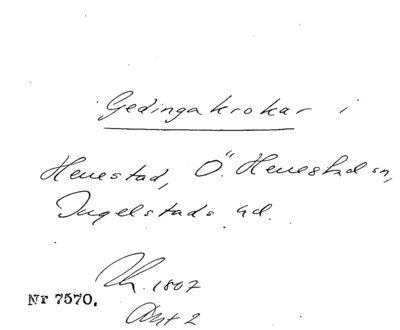 Gedingakrokar i
Herrestad, Ö. Herrestad sn,
Ingelstads hd.
Th. 1807
Nr 7570.
Avt 2